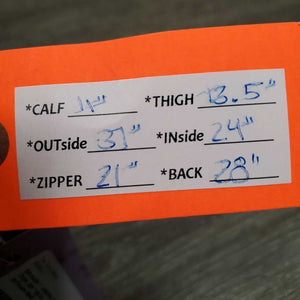 *CALF 14" *THIGH 13.5"
*OUTside 37" *INside 24"
*ZIPPER 21" *BACK 28"